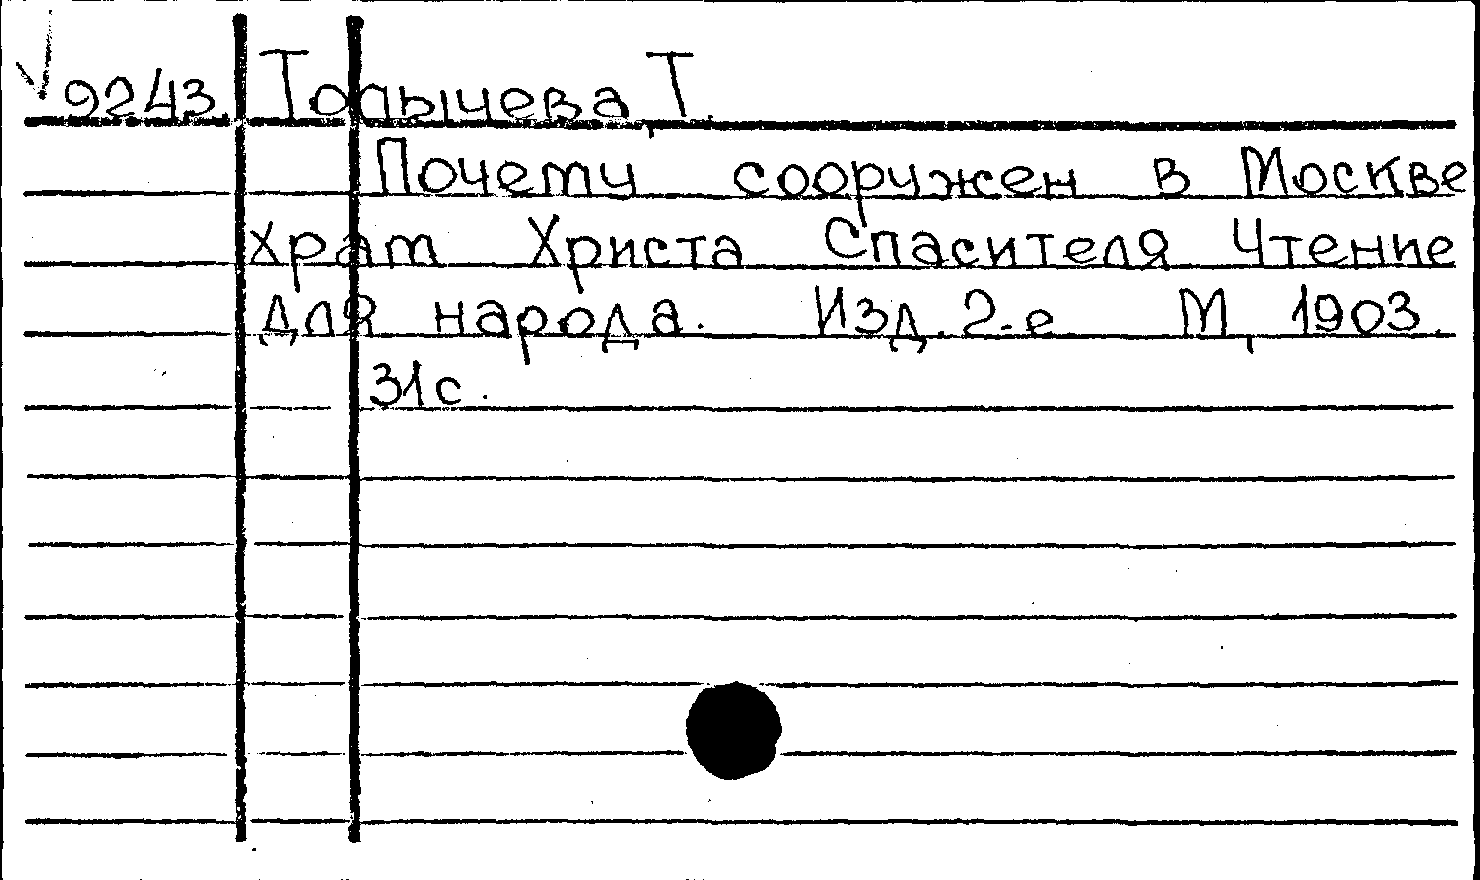 9243. Толычева, Т.
Почему сооружен в Москве
храм Христа Спасителя Чтение
для народа. Изд. 2-е М, 1903.
31с.